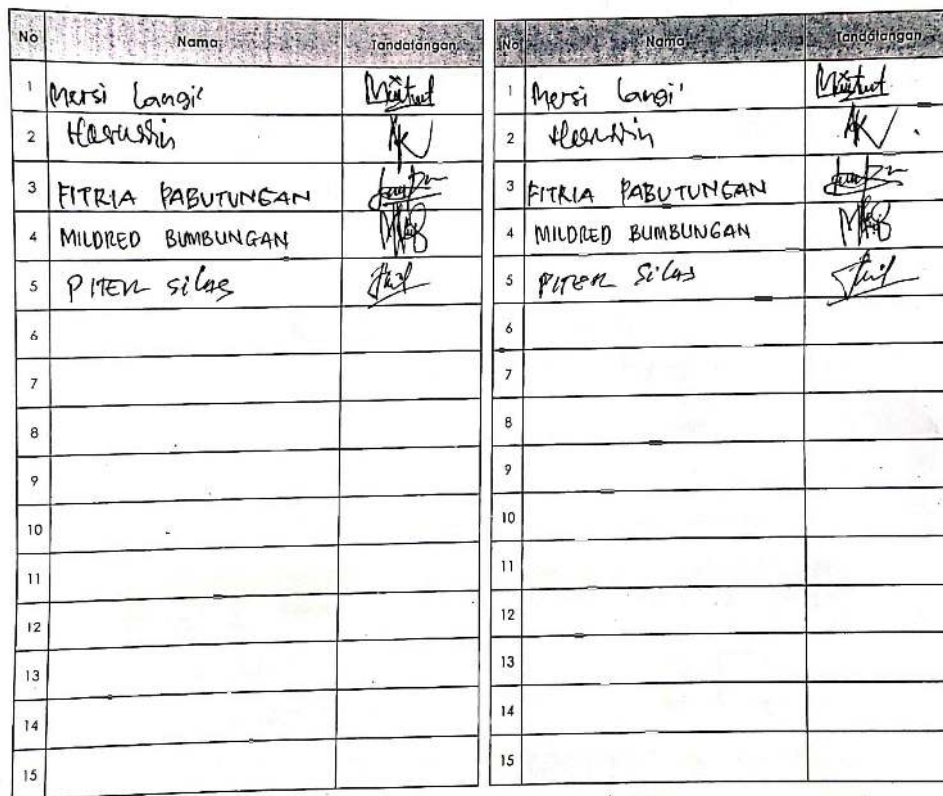 No Nama Tandatangan
1 Mersi Langi'
2
3 FITRIA PABUTUNGAN
4 MILDRED BUMBUNGAN
5 PITER SILAS
6
7
8
9
10
11
12
13
14
15
No Nama Tandatangan
1 Mersi Langi'
2
3 FITRIA PABUTUNGAN
4 MILDRED BUMBUNGAN
5 PITER SILAS
6
7
8
9
10
11
12
13
14
15